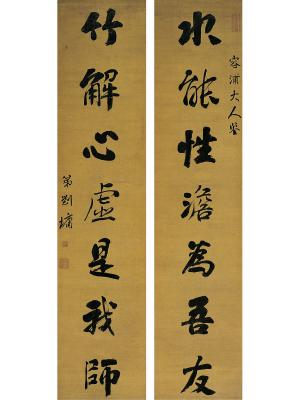 水能性澹為吾友
容浦大人鉴
竹解心虛是我師
弟劉墉